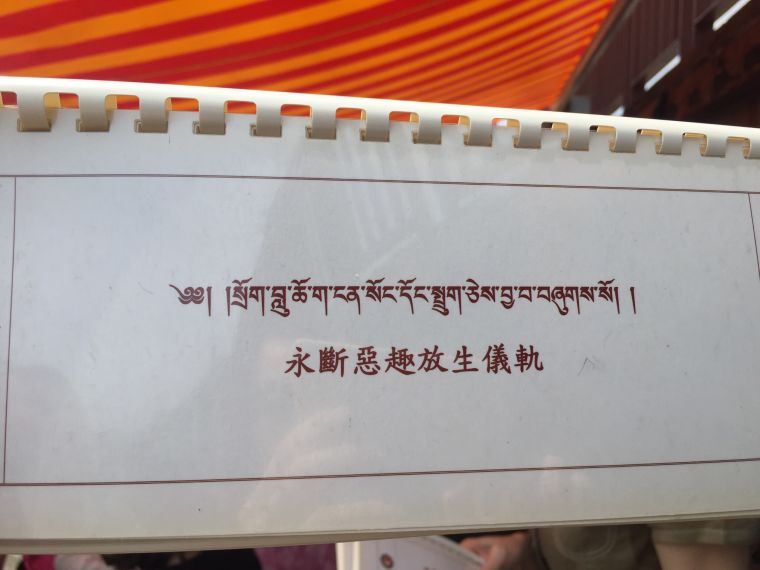 ༄༅། །སྲོག་བླུ་ཆོ་ག་ངན་སོང་དོང་སྤྲུག་ཅེས་བྱ་བ་བཞུགས་སོ། །
永斷惡趣放生儀軌